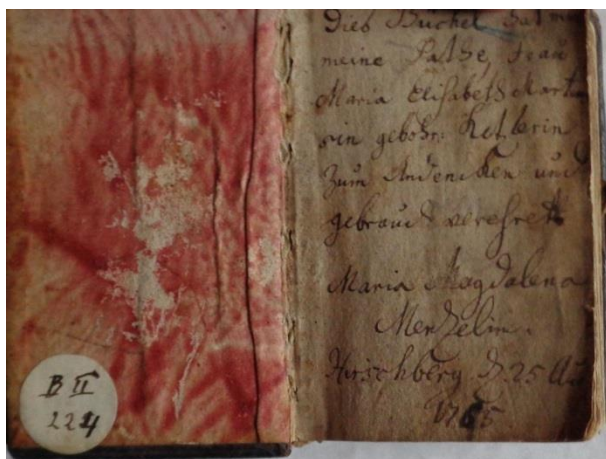 B II
224
Dies Büchel hat mir
meine Pathe, Frau
Maria Elisabeth
rin gebohr: Kellerin
Zum Andencken und
gebrauch verehret
Maria Magdalena
Menzelin.
Hirschberg d. 25
1765